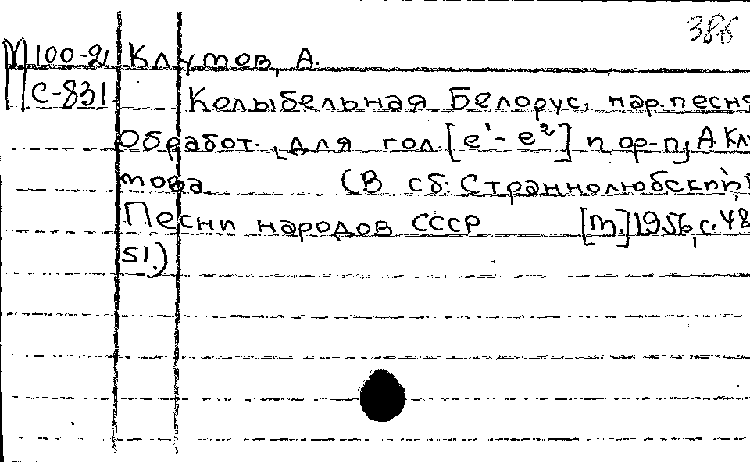 386
М 100-2/ Клумов, А.
С-831 Колыбельная Белорус. нар. песня
Обработ. для гол. [e¹-e²] и ор-п, А Клу
мова (В сб: Страннолюбский,
Песни народов СССР [М.] 1956, с. 48
51.)